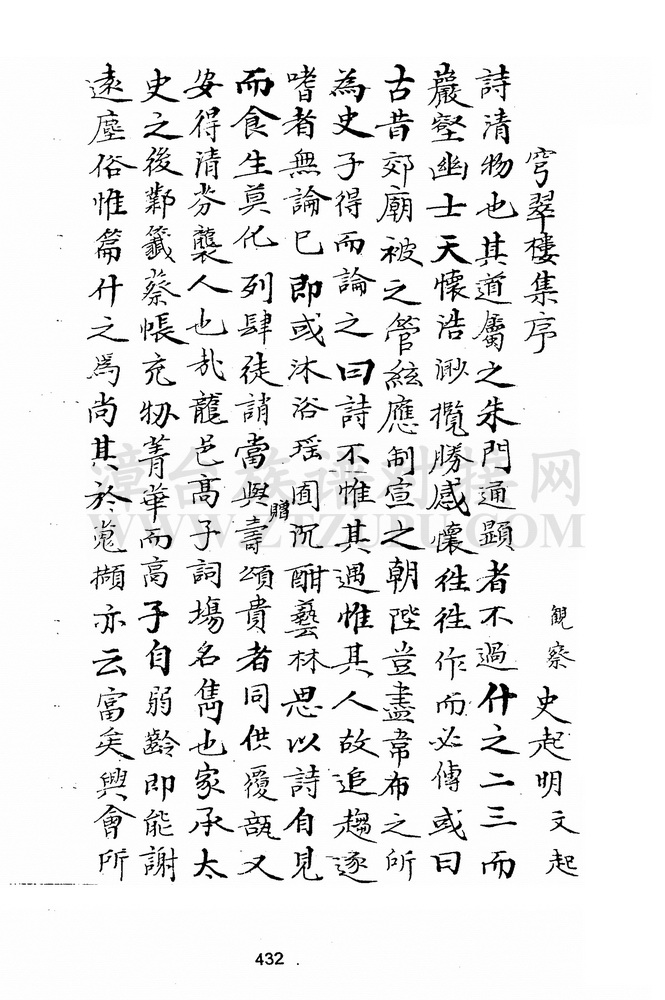 穹翠樓集序
觀察 史起明文起
詩清物也其道屬之朱門通顯者不過什之二三而
巖壑幽士天懷浩渺攬勝感懷往往作而必傳或曰
古昔郊廟被之管絃應制宣之朝陛豈盡韋布之所
為史子得而論之曰詩不惟其遇惟其人故追趨逐
嗜者無論已即或沐浴瑶囿沉酣藝林思以詩自見
而食生莫化列肆徒誚當與壽贈頌貴者同供覆瓿又
安得清芬襲人也㢤龍邑高子詞塲名雋也家承太
史之後鄴籖蔡帳充牣菁華而高子自弱齡即能謝
遠塵俗惟篇什之爲尚其於蒐擷亦云富矣興會所
漳台族谱对接网
WWW.ZTZUPU.COM
432